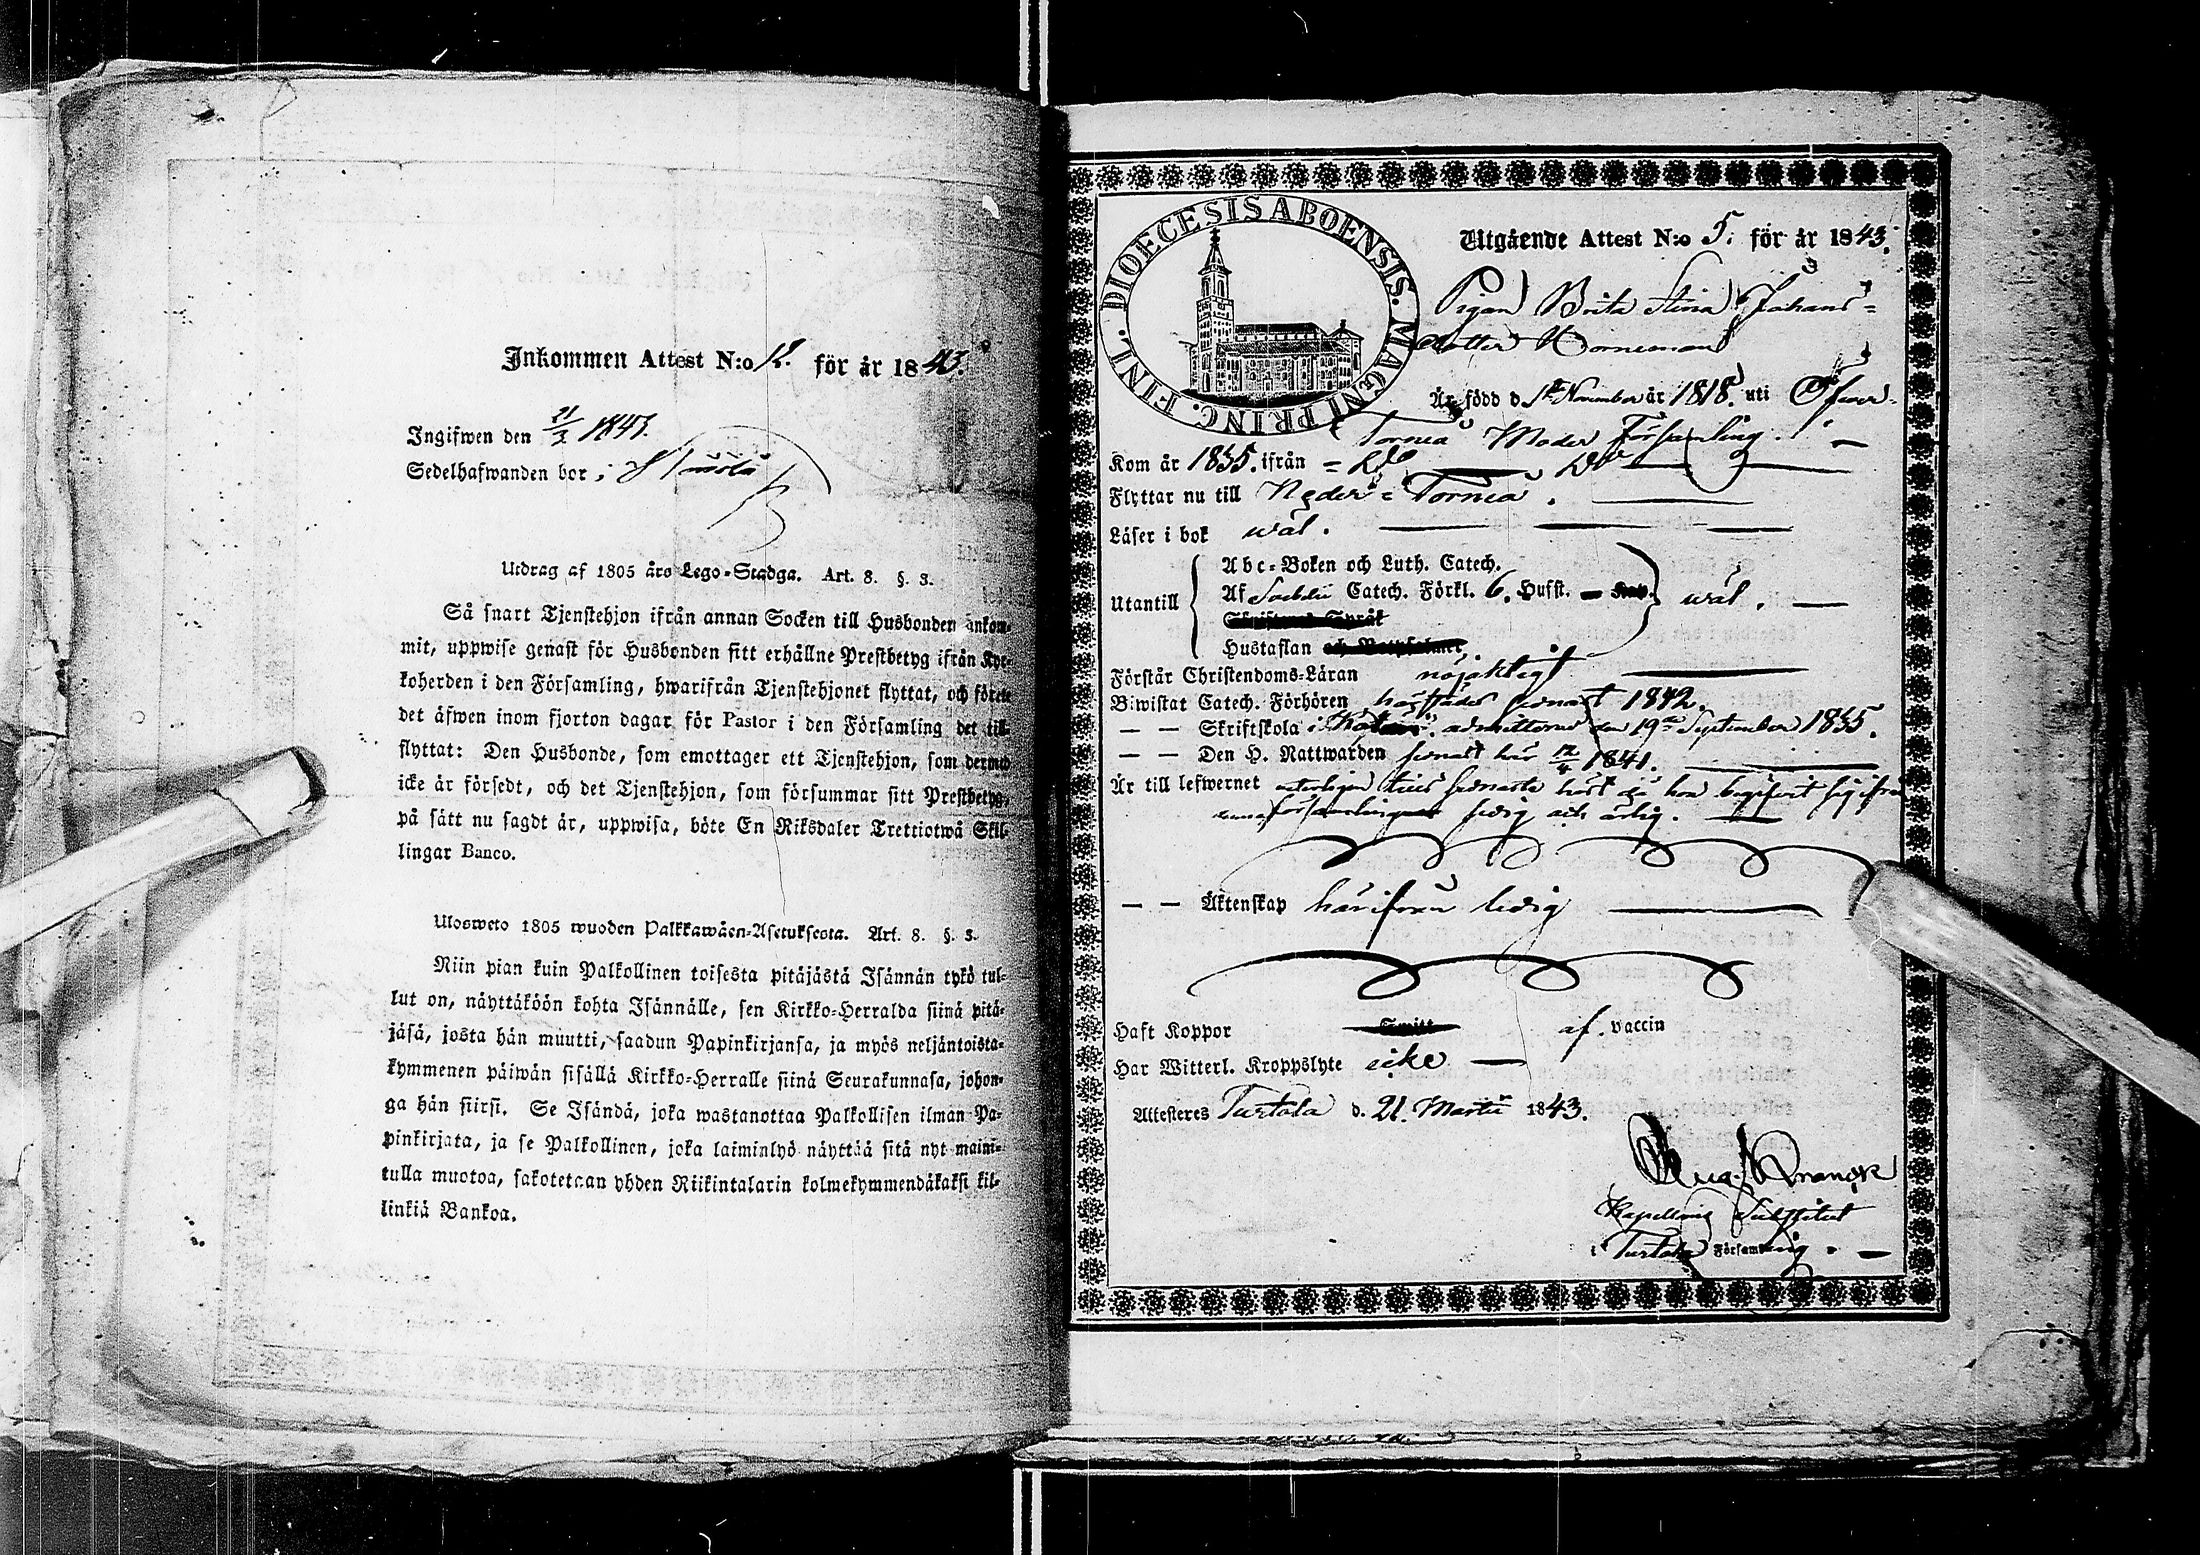 Inkommen Attest N:o 12. för år 1843.
Ingifwen den 21/3 1843.
Sedelhafwanden bor i
Utdrag af 1805 års Lego-Stadga. Art. 8. §. 3.
Så snart Tjenstehjon ifrån annan Socken till Husbonden ankom-
mit, uppwise genast för Husbonden sitt erhållne Prestbetyg ifrån Kyr-
koherden i den Församling, hwarifrån Tjenstehjonet flyttat, och förete
det äfwen inom fjorton dagar för Pastor i den Församling det till-
flyttat: Den Husbonde, som emottager ett Tjenstehjon, som dermed
icke är försedt, och det Tjenstehjon, som försummar sitt Prestbetyg,
på sätt nu sagdt är, uppwisa, böte En Riksdaler Trettiotwå Skil-
lingar Banco.
Ulosweto 1805 wuoden Palkkawäen-Asetuksesta. Art. 8. §. 3.
Niin pian kuin Palkollinen toisesta pitäjästä Isännän tykö tul-
lut on, näyttäköön kohta Isännälle, sen Kirkko-Herralda siinä pitä-
jäsä, josta hän muutti, saadun Papinkirjansa, ja myös neljäntoista-
kymmenen päiwän sisällä Kirkko-Herralle siinä Seurakunnasa, johon-
ga hän siirsi. Se Isändä, joka wastanottaa Palkollisen ilman Pa-
pinkirjata, ja se Palkollinen, joka laiminlyö näyttää sitä nyt maini-
tulla muotoa, sakotetaan yhden Riikintalarin kolmekymmendäkaksi kil-
linkiä Bankoa.
DIOECESIS ABOENSIS. MAGNI PRINC. FINL.
Utgående Attest N:o 5. för år 1843.
Pigan Brita Stina Johans-
dotter Horneman
Är född d 1 November år 1818. uti Öfwer-
Torneå Moder Församling.
Kom år 1835. ifrån
Flyttar nu till Neder-Torneå.
Läser i bok wäl.
Utantill
Abc-Boken och Luth. Catech.
Af Catech. Förkl. 6. Hufst. Kap. wäl.
Skriftenes Språk
Hustaflan och Botpsalmer,
Förstår Christendoms-Läran nöjaktigt
Biwistat Catech. Förhören härstädes senast 1842.
— — Skriftskola admitterad den 19de September 1835.
— — Den H. Nattwarden senast här 12/4 1841.
Är till lefwernet senaste höst då hon begifwit sig ifrån
församlingen sedig och ärlig.
— — Äktenskap härifrån ledig
Haft Koppor Smitt af vaccin
Har Witterl. Kroppslyte icke
Attesteres Turtola d. 21. Martii 1843.
Kapellans Substitut
i Turtola Församling.